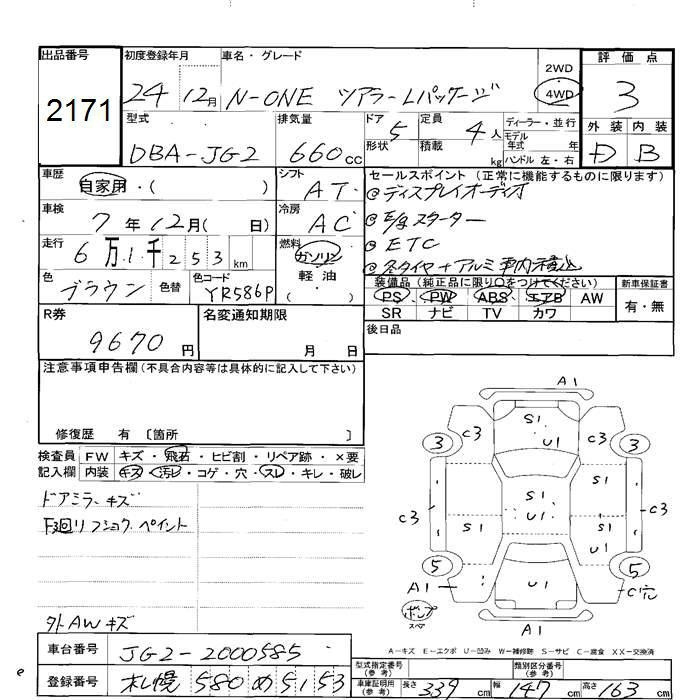 出品番号 初度登録年月 車名・グレード 2WD 評価点
2171 24 12月 N-ONE ツアラーLパッケージ 4WD 3
型式 排気量 ドア 5 定員 4人 ディーラー・並行 外装 内装
DBA-JG2 660cc 形状 積載 kg モデル年式 年 D B
ハンドル 左・右
車歴 自家用・( ) シフト AT セールスポイント (正常に機能するものに限ります)
◎ディスプレイオーディオ
車検 7年12月( 日) 冷房 AC ◎E/gスターター
◎ETC
走行 6万1千253km 燃料 ガソリン 軽油 ( ) ◎冬タイヤ+アルミ車内積込
色 ブラウン 色替 色コード YR586P 装備品 (純正品に限り○をつけてください) 新車保証書
PS PW ABS エアB AW 有・無
SR ナビ TV カワ
R券 9670円 名変通知期限 月 日 後日品
注意事項申告欄 (不具合内容等は具体的に記入して下さい)
修復歴 有 〔箇所 〕
検査員 FW キズ・飛石・ヒビ割・リペア跡・×要
記入欄 内装 キズ・汚レ・コゲ・穴・スレ・キレ・破レ
ドアミラーキズ
下廻りフショク、ペイント
外AWキズ
A1
C3 S1 U1 C3
3 3
S1 U1 S1
C3 C3
S1 S1 U1
5 5
A1 U1 C穴
ボレプ
スペア
A1
A-キズ E-エクボ U-凹み W-補修跡 S-サビ C-腐食 XX-交換済
車台番号 JG2-2000585
型式指定番号 (参考) 類別区分番号 (参考)
登録番号 札幌 580 め 5153
車庫証明用 (参考) 長さ 339cm 幅 147cm 高さ 163cm